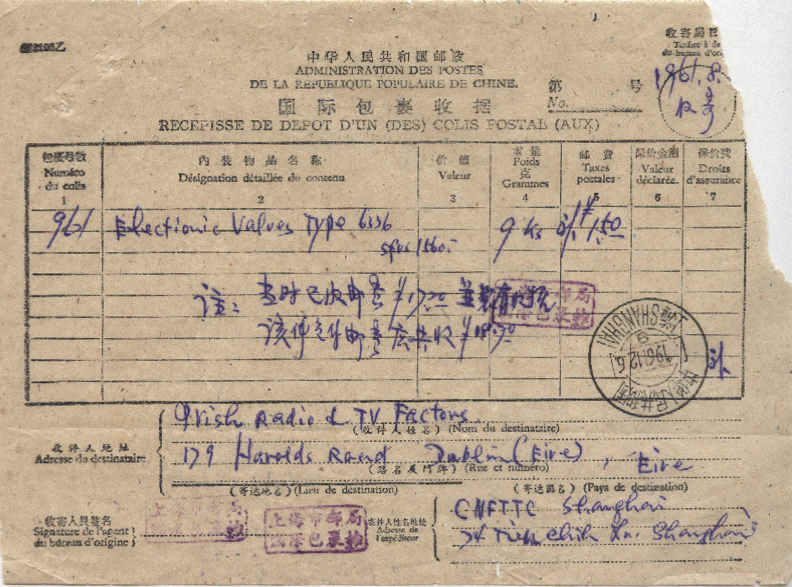 中华人民共和国邮政
ADMINISTRATION DES POSTES
DE LA REPUBLIQUE POPULAIRE DE CHINE.
国际包裹收据
RECEPISSE DE DEPOT D'UN (DES) COLIS POSTAL (AUX)
第 号
No.
收寄局日
Timbre à da
du bureau d'or
1961.8.
包裹号数
Numéro du colis
1
内装物品名称
Désignation détaillée du contenu
2
价值
Valeur
3
重量
Poids
克
Grammes
4
邮费
Taxes postales
5
保价金额
Valeur déclarée.
6
保价费
Droits d'assurance
7
961 Electionic Valves Type 6336 9 ks 1.50
注: 当时已收邮费 ¥17.20
该件邮费应共收
SHANGHAI
1961.12.6
中华人民共和国
Irish Radio & TV Factors.
(收件人姓名) (Nom du destinataire)
收件人地址
Adresse du destinataire
179 Harolds Road Dublin (Eire), Eire
(路名及门牌) (Rue et numéro)
(寄达地名) (Lieu de destination)
(寄达国名) (Pays de destination)
收寄人员签名
Signature de l'agent du bureau d'origine
上海市邮局
国际包裹
寄件人姓名地址
Adresse de l'expéditeur
CNFTTC Shanghai
Shanghai